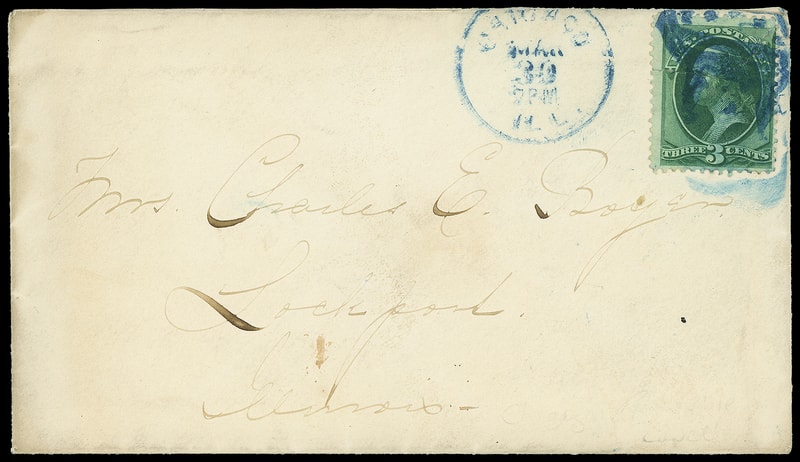 CHICAGO
30
7 PM
ILL.
POSTAGE
THREE 3 CENTS
Mrs. Charles E. Boyer
Lockport.
Illinois-